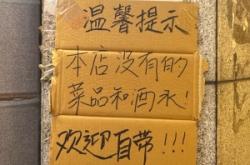 温馨提示
本店没有的
菜品和酒水!
欢迎自带!!!